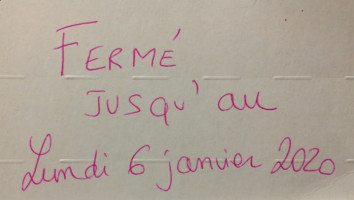 FERMÉ
JUSQU'au
Lundi 6 janvier 2020